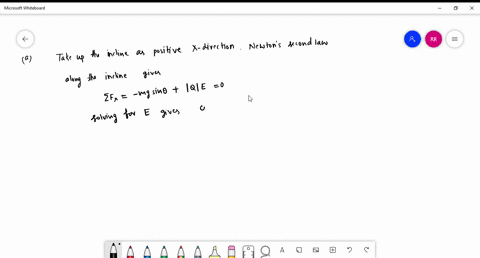 Microsoft Whiteboard
RR
(a) Take up the incline as positive X-direction. Newton's second law
along the incline gives
ΣFx = -mg sinθ + |Q| E = 0
solving for E gives